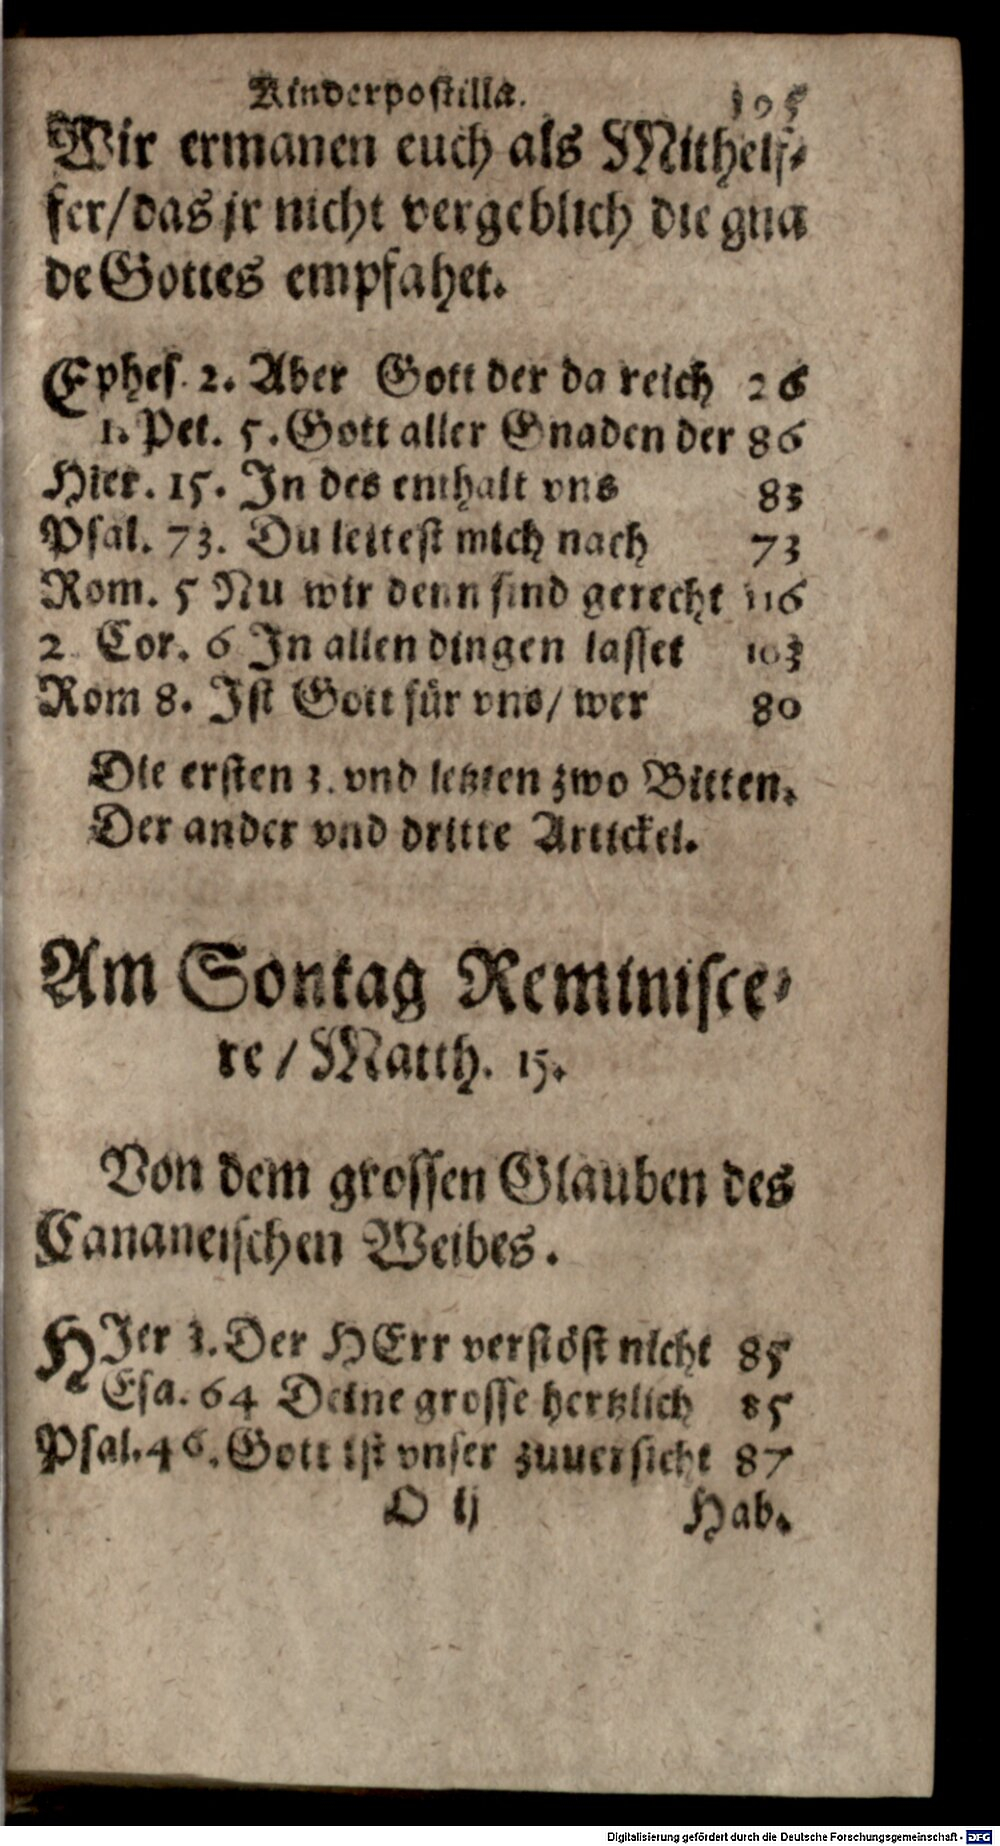 Kinderpostilla. 195
Wir ermanen euch als Mithelf-
fer/das jr nicht vergeblich die gna
de Gottes empfahet.
Ephes. 2. Aber Gott der da reich 26
1. Pet. 5. Gott aller Gnaden der 86
Hier. 15. In des enthalt vns 83
Psal. 73. Du leitest mich nach 73
Rom. 5 Nu wir denn sind gerecht 116
2 Cor. 6 In allen dingen lasset 103
Rom 8. Ist Gott für vns/ wer 80
Die ersten 3. vnd letzten zwo Bitten.
Der ander vnd dritte Artickel.
Am Sontag Reminisce-
re / Matth. 15.
Von dem grossen Glauben des
Cananeischen Weibes.
HIer 3. Der HErr verstöst nicht 85
Esa. 64 Deine grosse hertzlich 85
Psal. 46. Gott ist vnser zuuersicht 87
O ij Hab.
Digitalisierung gefördert durch die Deutsche Forschungsgemeinschaft - DFG